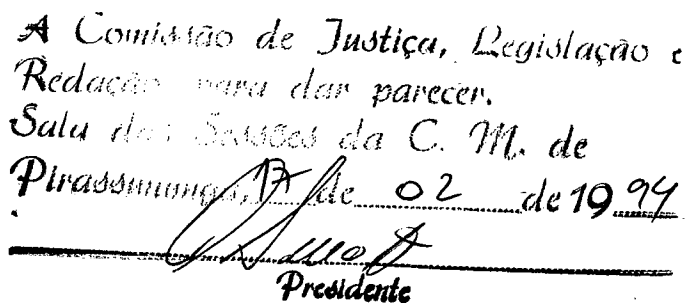 A Comissão de Justiça, Legislação e
Redação para dar parecer.
Sala das Sessões da C. M. de
Pirassununga, 17 de 02 de 19 94
Presidente